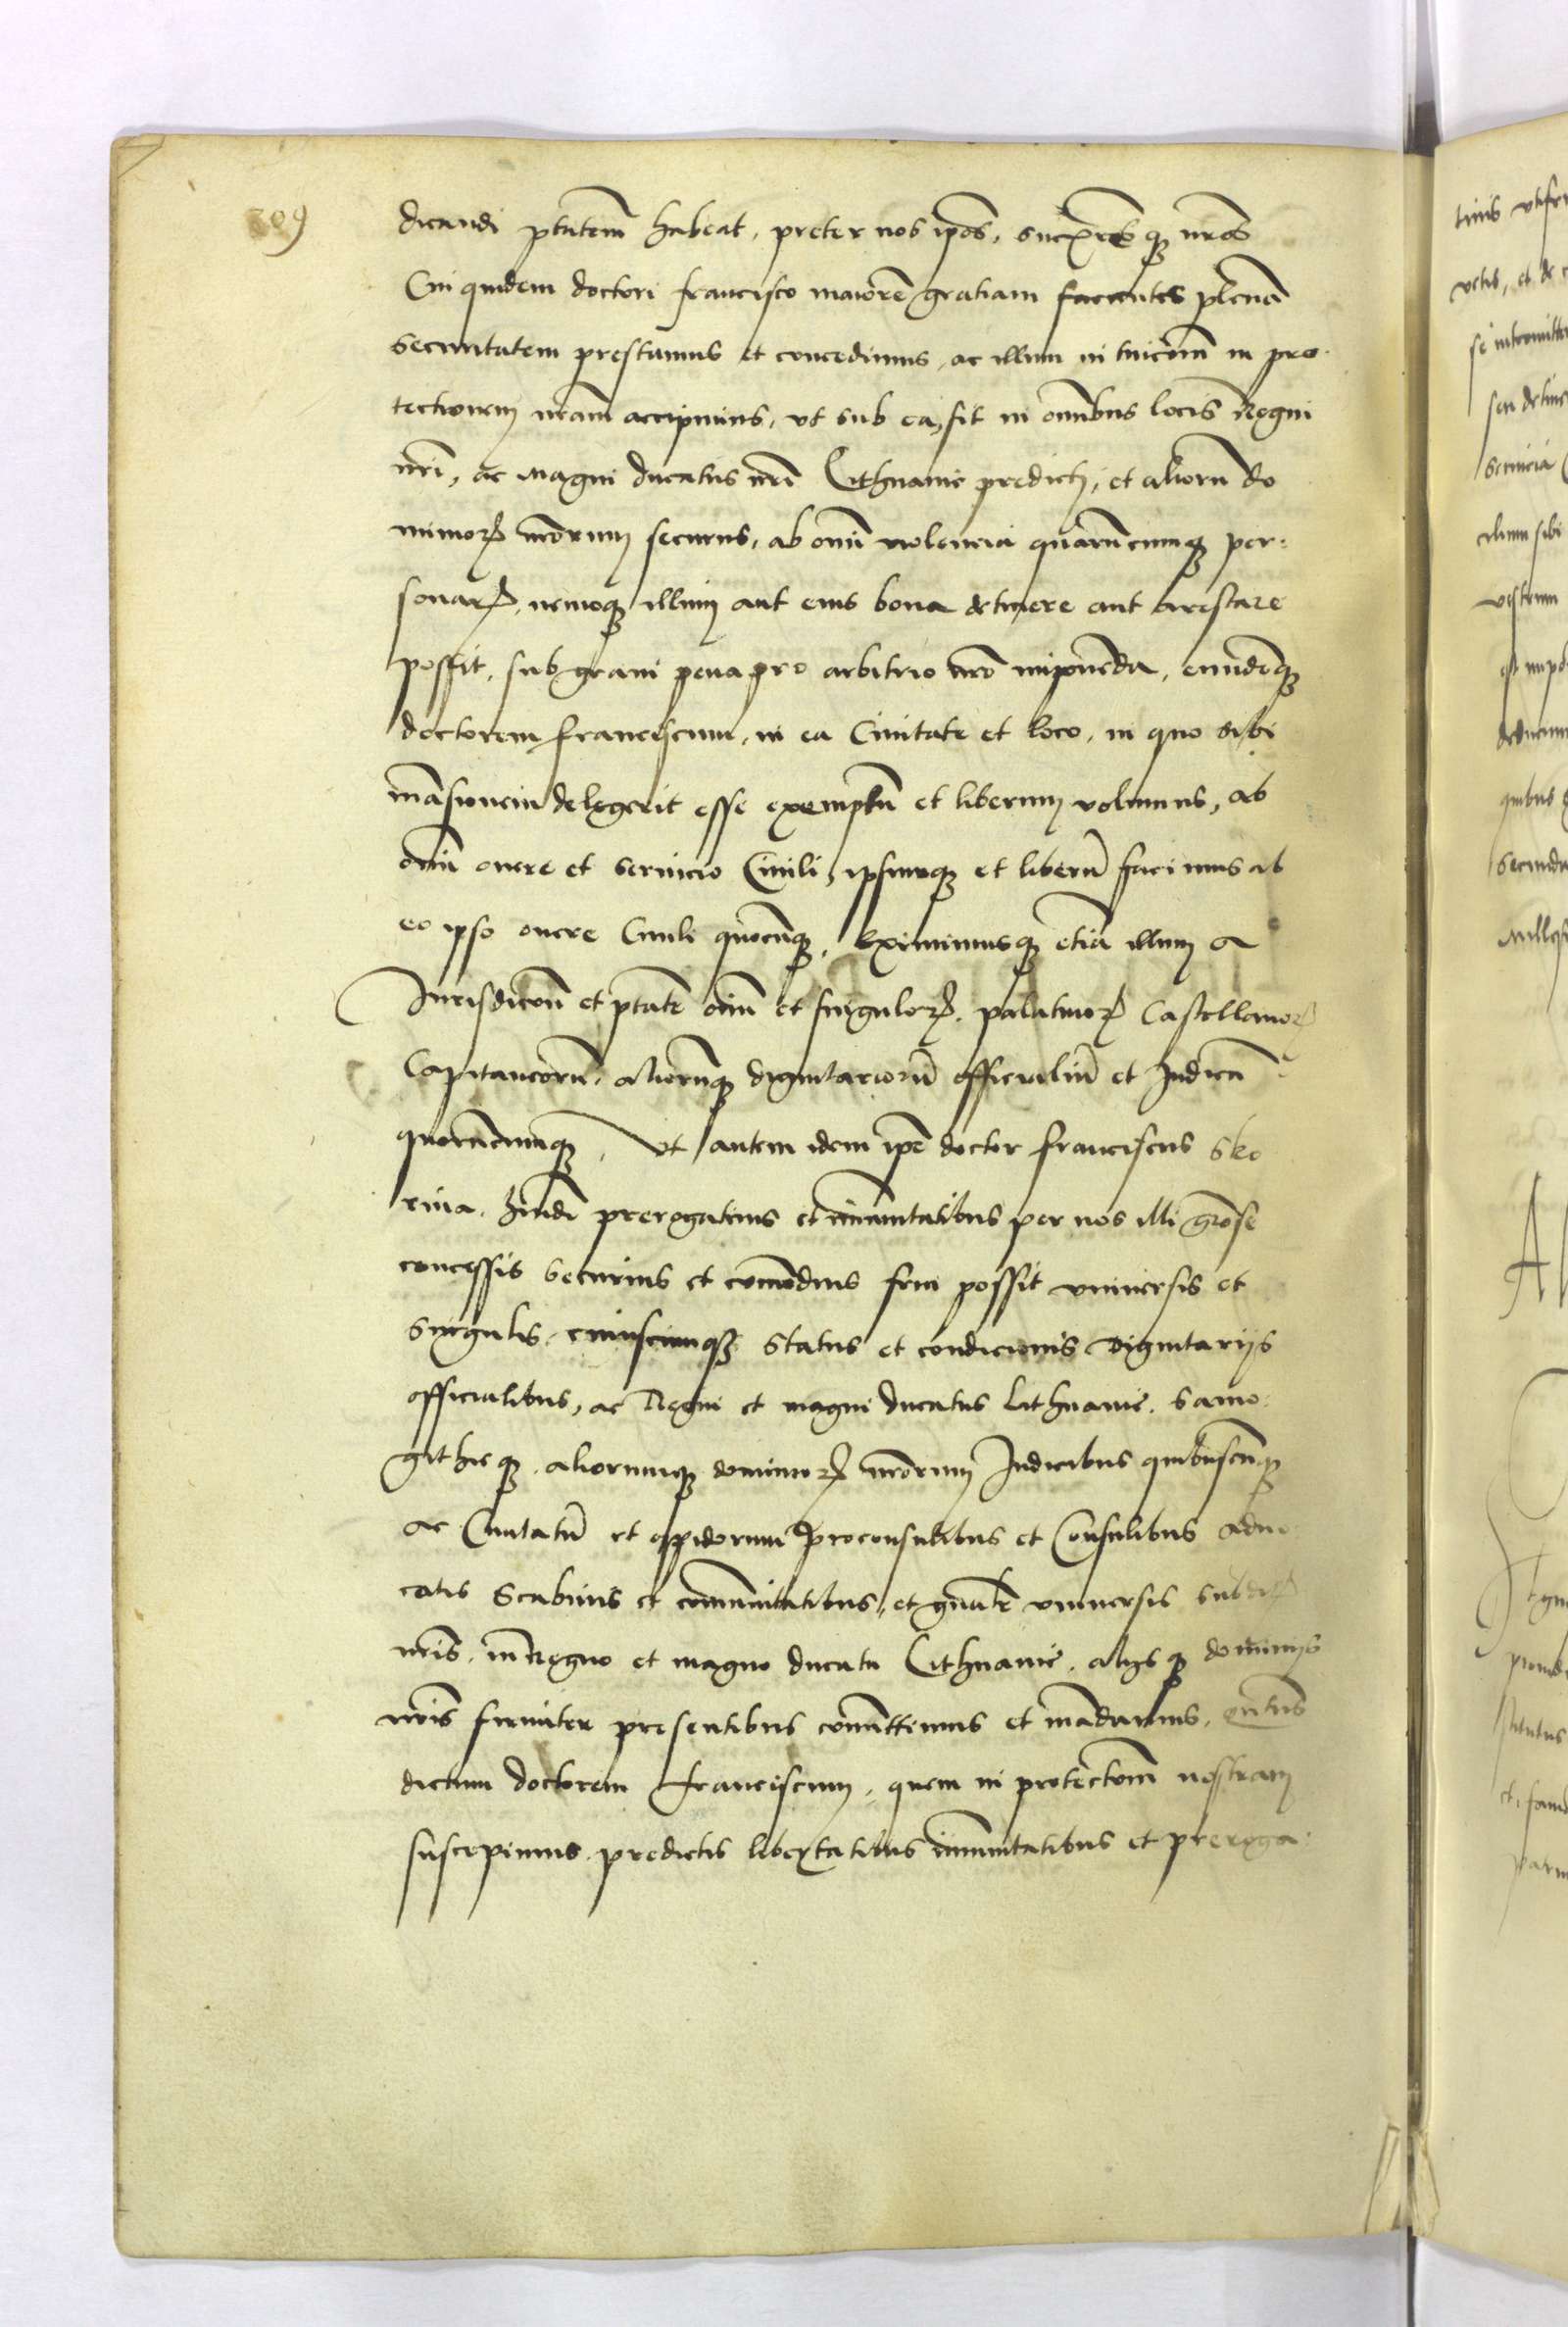 209
dicandi ptatem habeat, preter nos ipos, successoresq nros
Cui quidem doctori francisco maiorem gratiam facientes plenã
securitatem prestamus et concedimus, ac illum in tuicõem in pro
tectionem nram accipimus, vt sub ea, sit in omnibus locis Regni
nri, ac magni ducatus nri Lithuanie predicti, et aliorũ do
minior nrorum securus, ab omi violencia quarũcumq per:
sonar, nemoq illum aut eius bona detinere aut arestare
possit, sub gravi pena pro arbitrio nro imponẽda, eundẽq
doctorem franciscum, in ea Civitate et loco, in quo sibi
mãsionem delegerit esse exemptũ et liberum volumus, ab
omi onere et servicio Civili, ipsumq et liberũ facimus ab
eo ipso onere Civili quocũq, Eximimusq etiã illum a
Jurisdicõn et ptate oim et singulor, palatinor Castellanor
Capitaneorũ, aliorũq dignitariorũ officialiũ et Judicũ
quorũcumq, Vt autem idem ipe doctor franciscus Sko
rina, huiõi prerogativis et immunitatibus per nos illi grose
concessis securius et comodius frui possit universis et
singulis, cuiuscumq status et condicionis dignitariis
officialibus, ac Regni et magni ducatus Lithuanie, Samo:
githieq, aliorumq dominior nrorum Judicibus quibuscũq
ac Civitatũ et oppidorum proconsulibus et Consulibus advo
catis Scabinis et comunitatibus, et gnate universis subdit
nris, in Regno et magno ducatu Lithuanie, alijsq dominijs
nris firmiter presentibus comittimus et mãdamus, qntus
dictum doctorem franciscum, quem in protectõm nostram
suscepimus, predictis libertatibus immunitatibus et preroga: